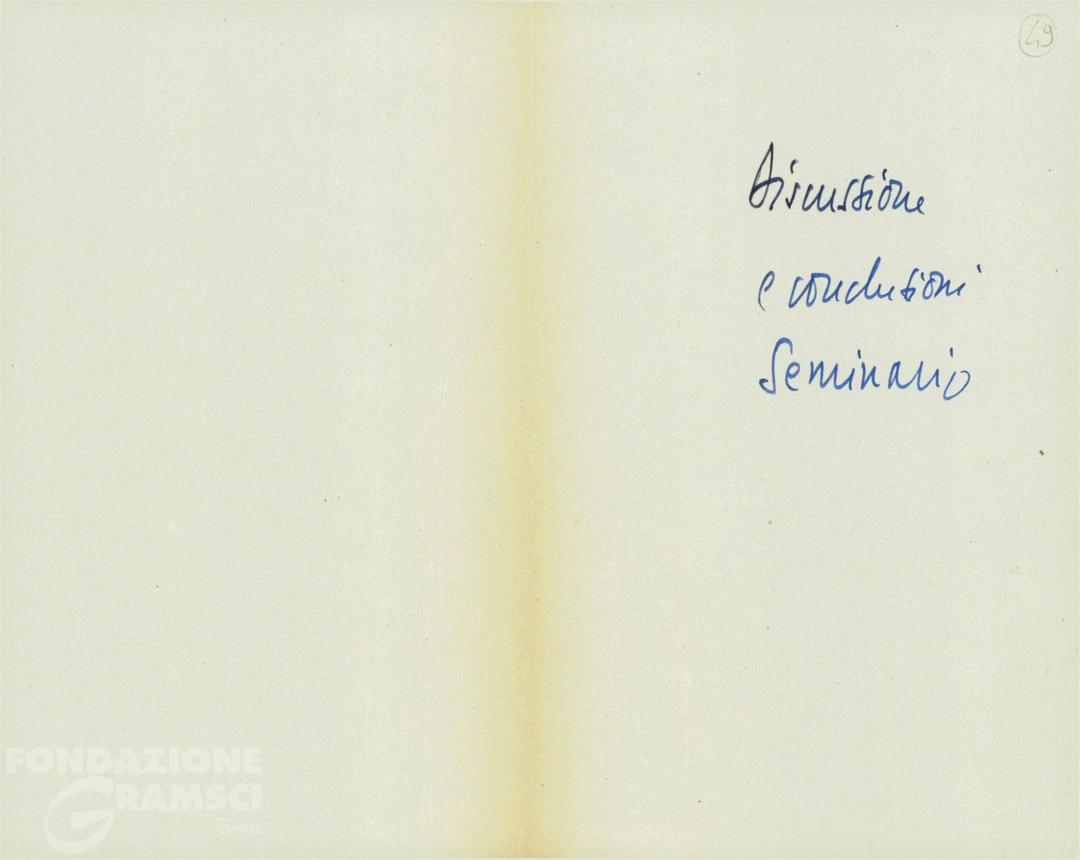 49
Discussione
e conclusioni
Seminario
FONDAZIONE
GRAMSCI
onlus